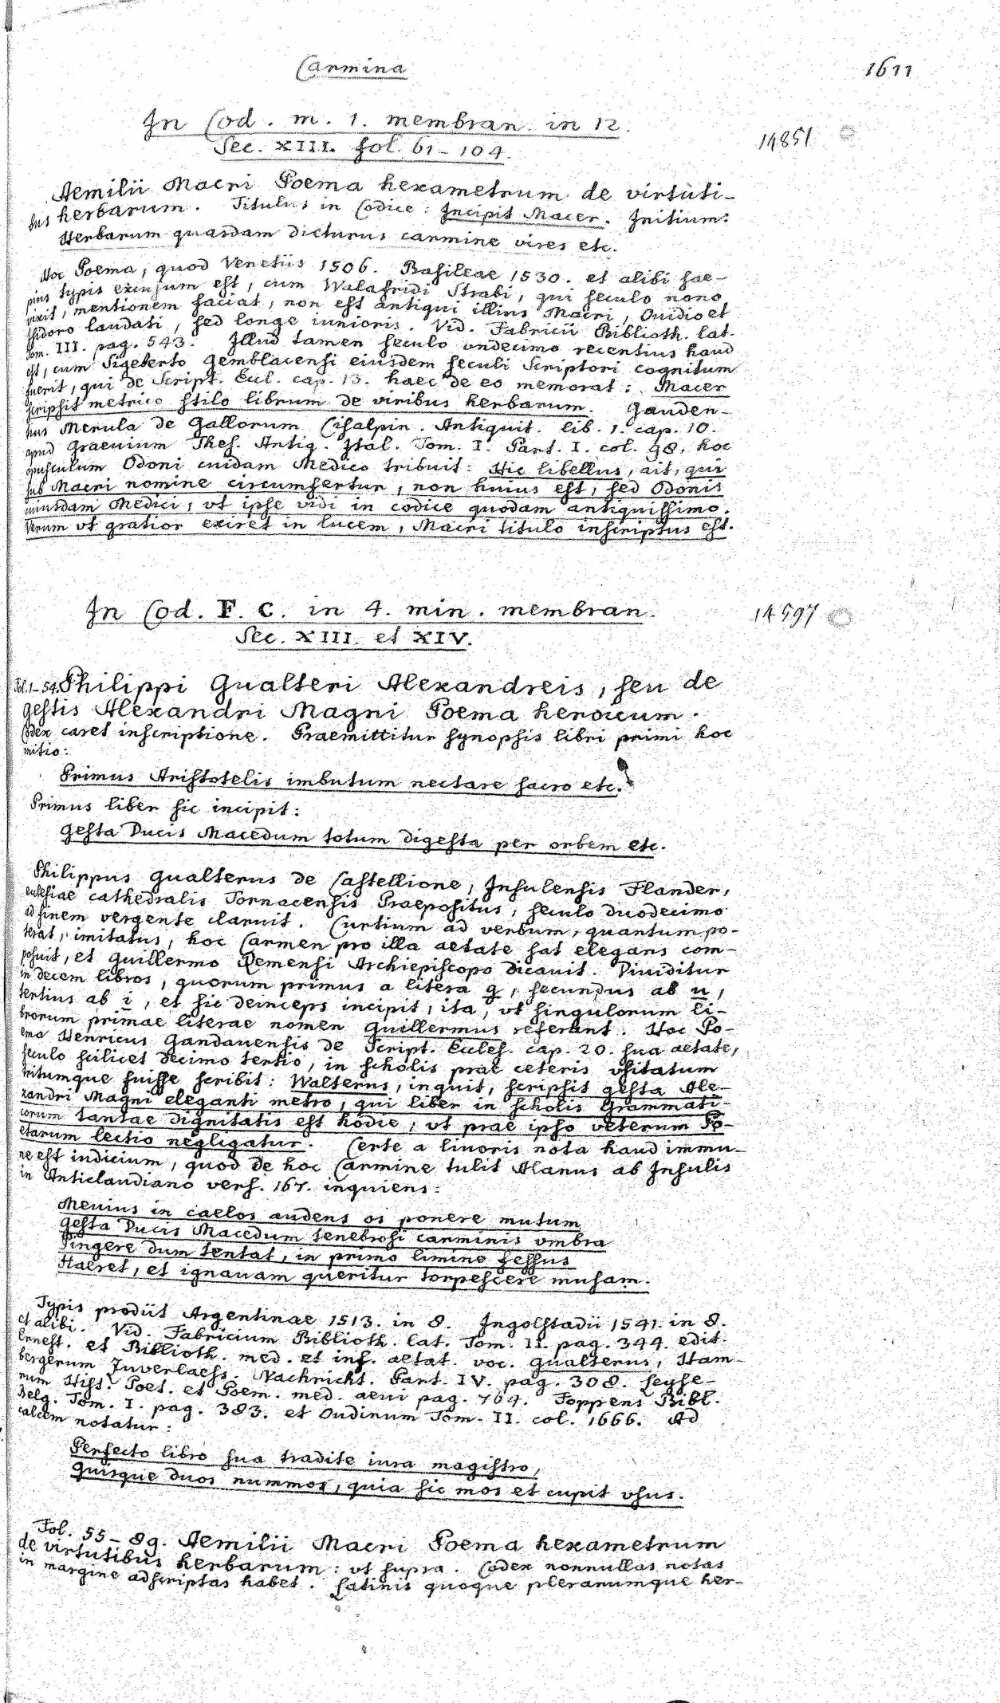 Carmina
1611
In Cod. m. 1. membran. in 12.
Sec. XIII. fol. 61-104.
14851
Aemilii Macri Poema hexametrum de virtuti-
bus herbarum. Titulus in Codice: Incipit Macer. Initium:
Herbarum quasdam dicturus carmine vires etc.
Hoc Poema, quod Venetiis 1506. Basileae 1530. et alibi sae-
pius typis excusum est, cum Walafridi Strabi, qui seculo nono
vixit, mentionem faciat, non est antiqui illius Macri, Ouidio et
Isidoro laudati, sed longe iunioris. Vid. Fabricii Biblioth. lat.
Tom. III. pag. 543. Illud tamen seculo vndecimo recentius haud
est, cum Sigeberto Gemblacensi eiusdem seculi Scriptori cognitum
fuerit, qui de Script. Eccl. cap. 13. haec de eo memorat: Macer
scripsit metrico stilo librum de viribus herbarum. Gauden-
tius Merula de Gallorum Cisalpin. Antiquit. lib. 1. cap. 10.
apud Graevium Thes. Antiq. Ital. Tom. I. Part. I. col. 98. hoc
opusculum Odoni cuidam Medico tribuit: Hic libellus, ait, qui
sub Macri nomine circumfertur, non huius est, sed Odonis
cuiusdam Medici, vt ipse vidi in codice quodam antiquissimo.
Verum vt gratior exiret in lucem, Macri titulo inscriptus est.
In Cod. F. C. in 4. min. membran.
Sec. XIII. et XIV.
14597
Fol. 1-54. Philippi Gualteri Alexandreis, seu de
gestis Alexandri Magni Poema heroicum.
Codex caret inscriptione. Praemittitur synopsis libri primi hoc
initio:
Primus Aristotelis imbutum nectare sacro etc.
Primus liber sic incipit:
Gesta Ducis Macedum totum digesta per orbem etc.
Philippus Gualterus de Castellione, Insulensis Flander,
ecclesiae cathedralis Tornacensis Praepositus, seculo duodecimo
ad finem vergente claruit. Curtium ad verbum, quantum po-
terat, imitatus, hoc Carmen pro illa aetate sat elegans com-
posuit, et Guillermo Remensi Archiepiscopo dicauit. Diuiditur
in decem libros, quorum primus a litera g, secundus ab u,
tertius ab i, et sic deinceps incipit, ita, vt singulorum li-
brorum primae literae nomen Guillermus referant. Hoc Po-
ema Henricus Gandauensis de Script. Eccles. cap. 20. sua aetate,
seculo scilicet decimo tertio, in scholis prae ceteris vsitatum
tritumque fuisse scribit: Walterus, inquit, scripsit gesta Ale-
xandri Magni eleganti metro, qui liber in scholis Grammati-
corum tantae dignitatis est hodie, vt prae ipso veterum Po-
etarum lectio negligatur. Certe a liuoris nota haud immu-
ne est indicium, quod de hoc Carmine tulit Alanus ab Insulis
in Anticlaudiano vers. 167. inquiens:
Meuius in caelos audens os ponere mutum
Gesta Ducis Macedum tenebrosi carminis vmbra
Pingere dum tentat, in primo limine fessus
Haeret, et ignauam queritur torpescere musam.
Typis prodiit Argentinae 1513. in 8. Ingolstadii 1541. in 8.
et alibi. Vid. Fabricium Biblioth. lat. Tom. II. pag. 344. edit.
Ernest. et Biblioth. med. et inf. aetat. voc. Gualterus, Ham-
bergerum Zuverlaess. Nachricht. Part. IV. pag. 308. Leyse-
rum Hist. Poet. et Poem. med. aeui pag. 764. Foppens Bibl.
Belg. Tom. I. pag. 383. et Oudinum Tom. II. col. 1666. Ad
calcem notatur:
Perfecto libro sua tradite iura magistro,
Quisque duos nummos, quia sic mos et cupit vsus.
Fol. 55-89. Aemilii Macri Poema hexametrum
de virtutibus herbarum: vt supra. Codex nonnullas notas
in margine adscriptas habet. Latinis quoque plerarumque her-